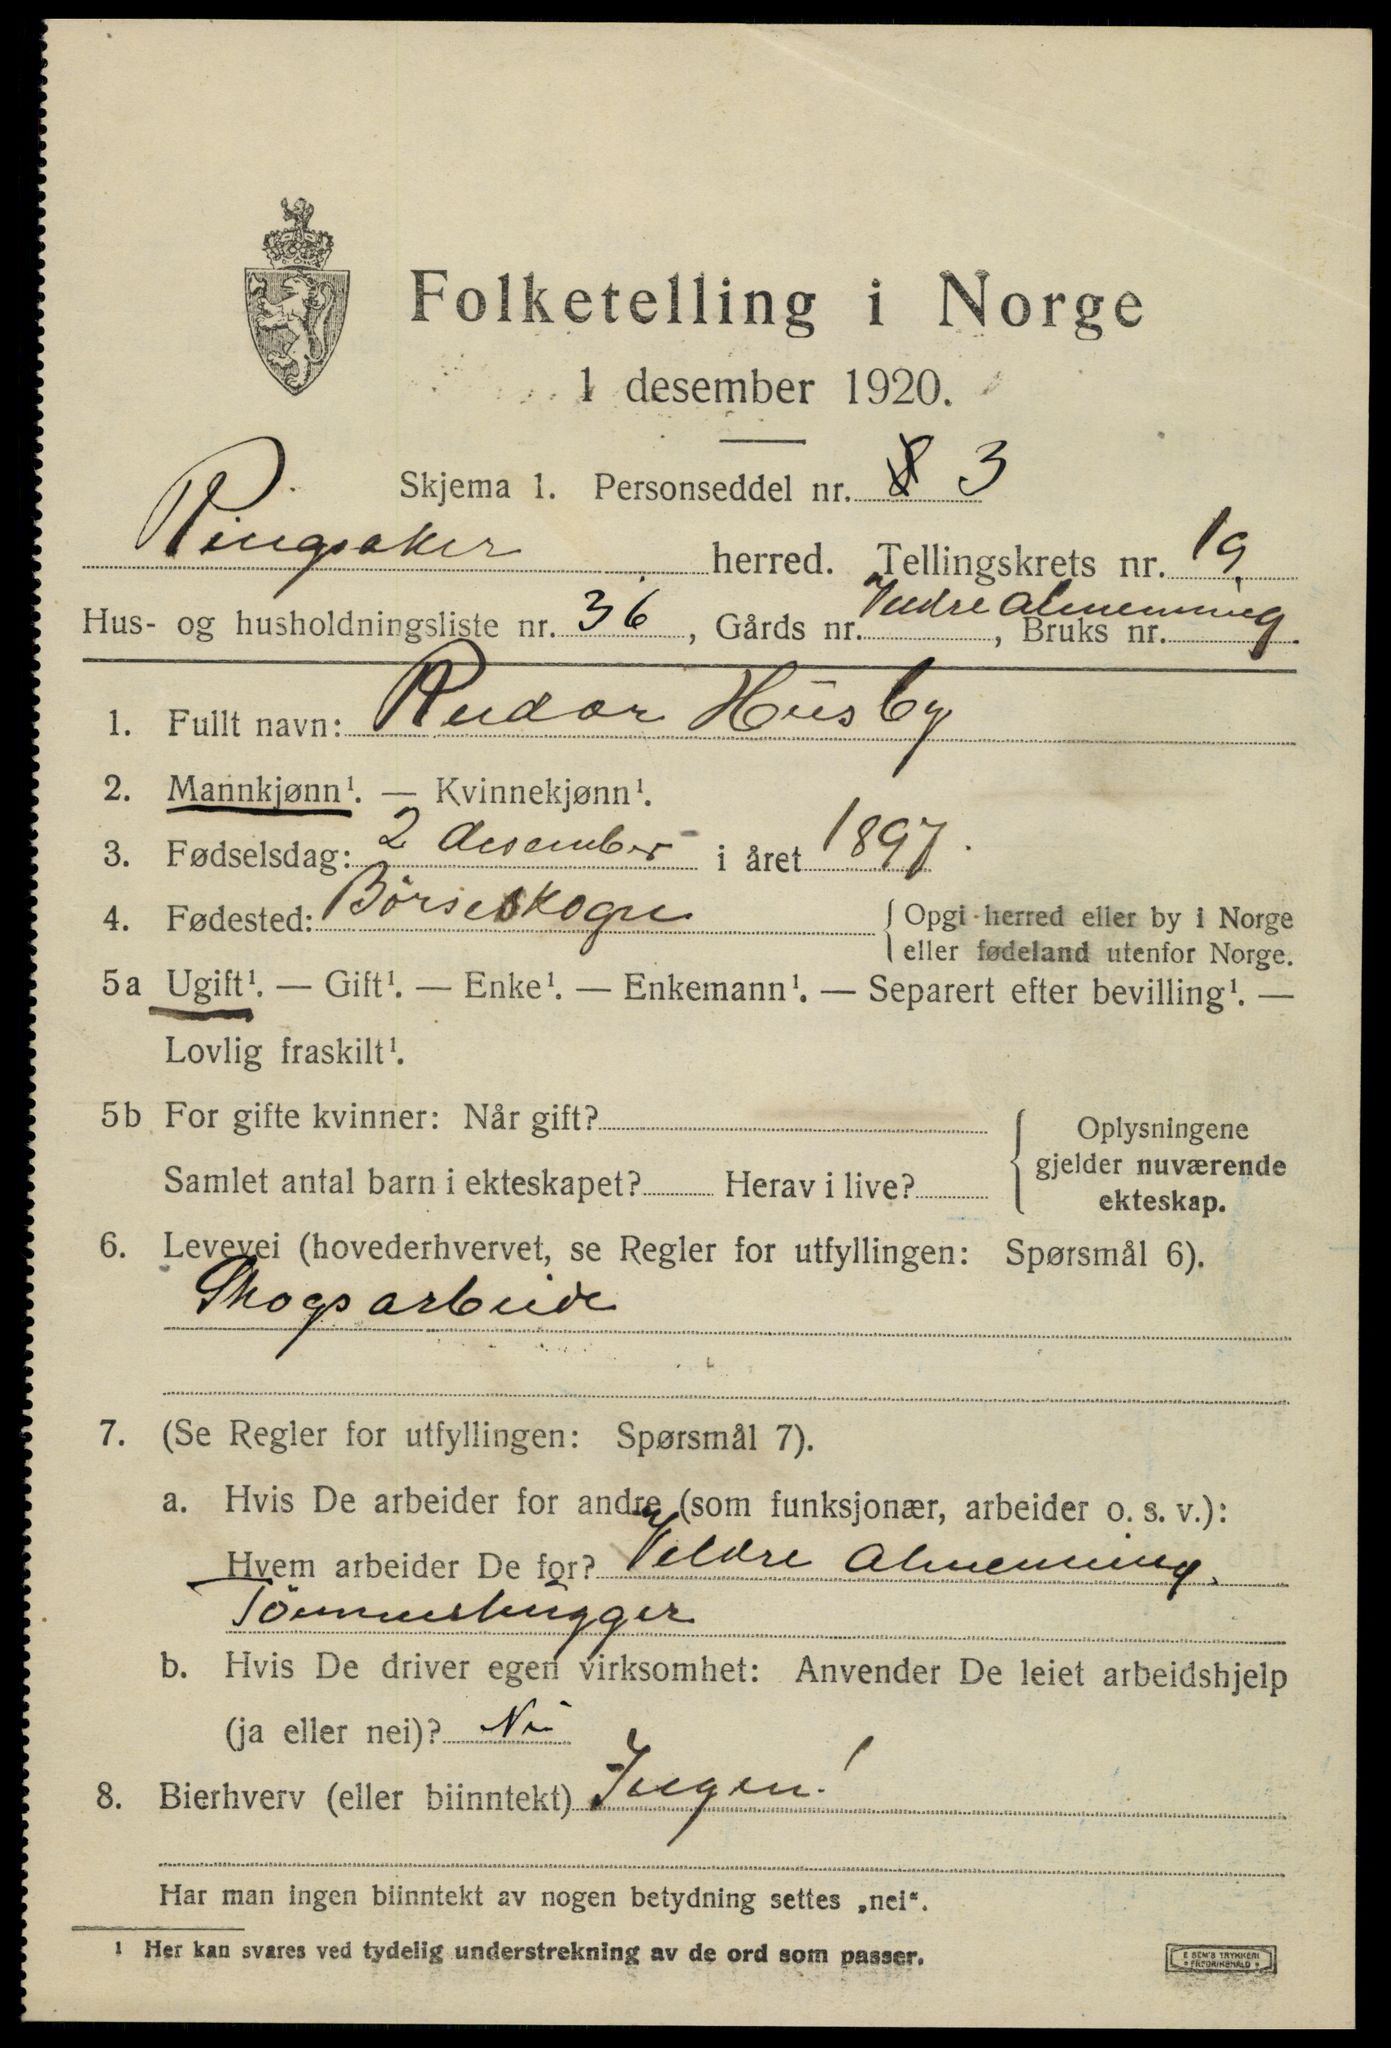 Folketelling i Norge
1 desember 1920.
Skjema 1. Personseddel nr. 8 3
Ringsaker herred. Tellingskrets nr. 19
Hus- og husholdningsliste nr. 36, Gårds nr. Veldre Almenning, Bruks nr.
1. Fullt navn: Reidar Husby
2. Mannkjønn¹. — Kvinnekjønn¹.
3. Fødselsdag: 2 desember i året 1897.
4. Fødested: Børseskogn {Opgi herred eller by i Norge
eller fødeland utenfor Norge.
5a Ugift¹. — Gift¹. — Enke¹. — Enkemann¹. — Separert efter bevilling¹. —
Lovlig fraskilt¹.
5b For gifte kvinner: Når gift?
Samlet antal barn i ekteskapet? Herav i live?
Oplysningene
gjelder nuværende
ekteskap.
6. Levevei (hovederhvervet, se Regler for utfyllingen: Spørsmål 6).
Skogsarbeide
7. (Se Regler for utfyllingen: Spørsmål 7).
a. Hvis De arbeider for andre (som funksjonær, arbeider o. s. v.):
Hvem arbeider De for? Veldre Almenning.
Tömmerhugger
b. Hvis De driver egen virksomhet: Anvender De leiet arbeidshjelp
(ja eller nei)? Nei
8. Bierhverv (eller biinntekt) Ingen!
Har man ingen biinntekt av nogen betydning settes „nei“.
1 Her kan svares ved tydelig understrekning av de ord som passer.
E SEM'S TRYKKERI
FREDRIKSHALD